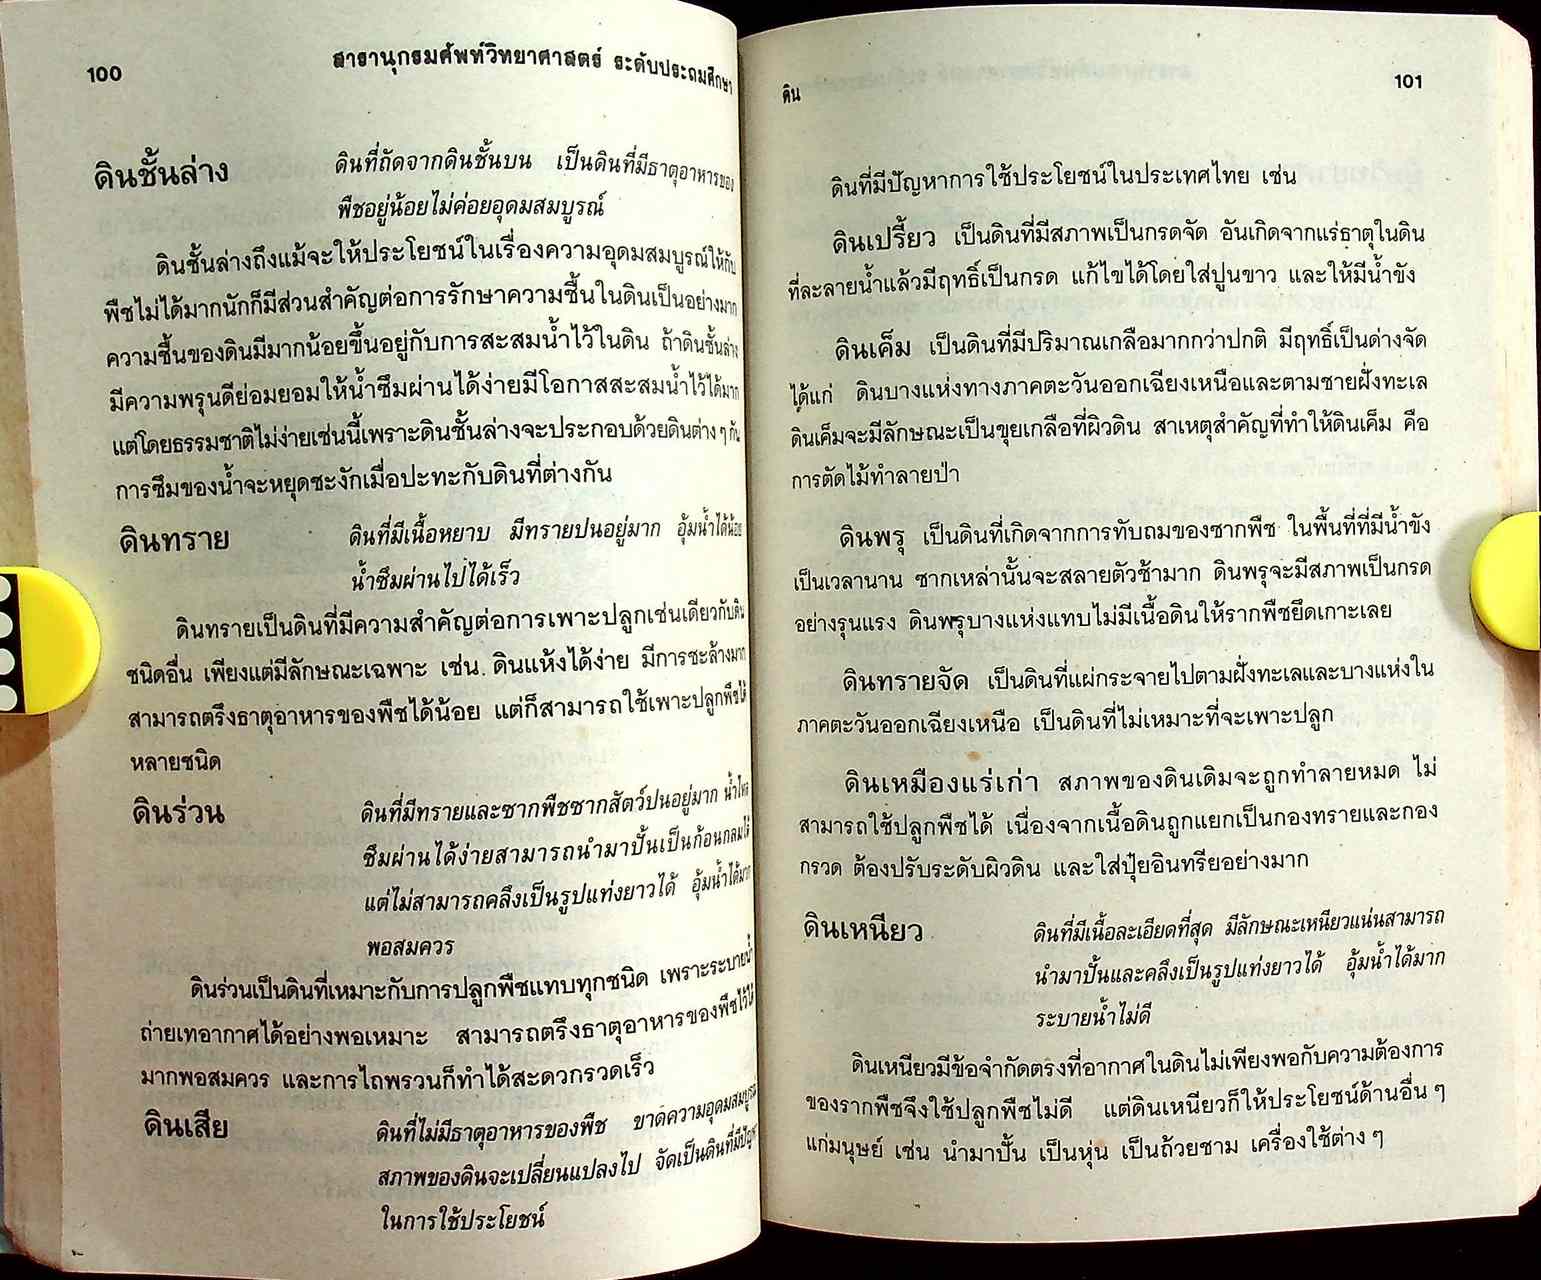 100
สารานุกรมศัพท์วิทยาศาสตร์ ระดับประถมศึกษา
ดินชั้นล่าง
ดินที่ถัดจากดินชั้นบน เป็นดินที่มีธาตุอาหารของ
พืชอยู่น้อยไม่ค่อยอุดมสมบูรณ์
ดินชั้นล่างถึงแม้จะให้ประโยชน์ในเรื่องความอุดมสมบูรณ์ให้กับ
พืชไม่ได้มากนักก็มีส่วนสำคัญต่อการรักษาความชื้นในดินเป็นอย่างมาก
ความชื้นของดินมีมากน้อยขึ้นอยู่กับการสะสมน้ำไว้ในดิน ถ้าดินชั้นล่าง
มีความพรุนดีย่อมยอมให้น้ำซึมผ่านได้ง่ายมีโอกาสสะสมน้ำไว้ได้มาก
แต่โดยธรรมชาติไม่ง่ายเช่นนี้เพราะดินชั้นล่างจะประกอบด้วยดินต่าง ๆ กัน
การซึมของน้ำจะหยุดชะงักเมื่อปะทะกับดินที่ต่างกัน
ดินทราย
ดินที่มีเนื้อหยาบ มีทรายปนอยู่มาก อุ้มน้ำได้น้อย
น้ำซึมผ่านไปได้เร็ว
ดินทรายเป็นดินที่มีความสำคัญต่อการเพาะปลูกเช่นเดียวกับดิน
ชนิดอื่น เพียงแต่มีลักษณะเฉพาะ เช่น ดินแห้งได้ง่าย มีการชะล้างมาก
สามารถตรึงธาตุอาหารของพืชได้น้อย แต่ก็สามารถใช้เพาะปลูกพืชได้
หลายชนิด
ดินร่วน
ดินที่มีทรายและซากพืชซากสัตว์ปนอยู่มาก น้ำไหล
ซึมผ่านได้ง่ายสามารถนำมาปั้นเป็นก้อนกลมได้
แต่ไม่สามารถคลึงเป็นรูปแท่งยาวได้ อุ้มน้ำได้มาก
พอสมควร
ดินร่วนเป็นดินที่เหมาะกับการปลูกพืชแทบทุกชนิด เพราะระบายน้ำ
ถ่ายเทอากาศได้อย่างพอเหมาะ สามารถตรึงธาตุอาหารของพืชไว้ได้
มากพอสมควร และการไถพรวนก็ทำได้สะดวกรวดเร็ว
ดินเสีย
ดินที่ไม่มีธาตุอาหารของพืช ขาดความอุดมสมบูรณ์
สภาพของดินจะเปลี่ยนแปลงไป จัดเป็นดินที่มีปัญหา
ในการใช้ประโยชน์
ดิน
101
ดินที่มีปัญหาการใช้ประโยชน์ในประเทศไทย เช่น
ดินเปรี้ยว เป็นดินที่มีสภาพเป็นกรดจัด อันเกิดจากแร่ธาตุในดิน
ที่ละลายน้ำแล้วมีฤทธิ์เป็นกรด แก้ไขได้โดยใส่ปูนขาว และให้มีน้ำขัง
ดินเค็ม เป็นดินที่มีปริมาณเกลือมากกว่าปกติ มีฤทธิ์เป็นด่างจัด
ได้แก่ ดินบางแห่งทางภาคตะวันออกเฉียงเหนือและตามชายฝั่งทะเล
ดินเค็มจะมีลักษณะเป็นขุยเกลือที่ผิวดิน สาเหตุสำคัญที่ทำให้ดินเค็ม คือ
การตัดไม้ทำลายป่า
ดินพรุ เป็นดินที่เกิดจากการทับถมของซากพืช ในพื้นที่ที่มีน้ำขัง
เป็นเวลานาน ซากเหล่านั้นจะสลายตัวช้ามาก ดินพรุจะมีสภาพเป็นกรด
อย่างรุนแรง ดินพรุบางแห่งแทบไม่มีเนื้อดินให้รากพืชยึดเกาะเลย
ดินทรายจัด เป็นดินที่แผ่กระจายไปตามฝั่งทะเลและบางแห่งใน
ภาคตะวันออกเฉียงเหนือ เป็นดินที่ไม่เหมาะที่จะเพาะปลูก
ดินเหมืองแร่เก่า สภาพของดินเดิมจะถูกทำลายหมด ไม่
สามารถใช้ปลูกพืชได้ เนื่องจากเนื้อดินถูกแยกเป็นกองทรายและกอง
กรวด ต้องปรับระดับผิวดิน และใส่ปุ๋ยอินทรีย์อย่างมาก
ดินเหนียว
ดินที่มีเนื้อละเอียดที่สุด มีลักษณะเหนียวแน่นสามารถ
นำมาปั้นและคลึงเป็นรูปแท่งยาวได้ อุ้มน้ำได้มาก
ระบายน้ำไม่ดี
ดินเหนียวมีข้อจำกัดตรงที่อากาศในดินไม่เพียงพอกับความต้องการ
ของรากพืชจึงใช้ปลูกพืชไม่ดี แต่ดินเหนียวก็ให้ประโยชน์ด้านอื่น ๆ
แก่มนุษย์ เช่น นำมาปั้น เป็นหุ่น เป็นถ้วยชาม เครื่องใช้ต่าง ๆ